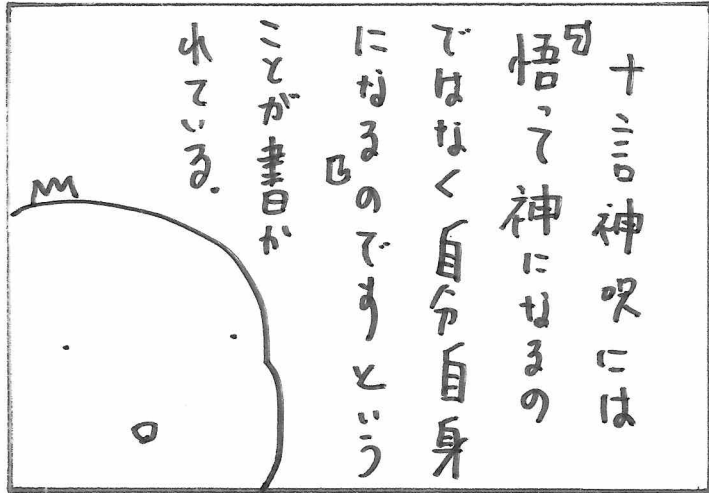 十言神呪には
『悟って神になるの
ではなく自分自身
になるのです』という
ことが書か
れている.